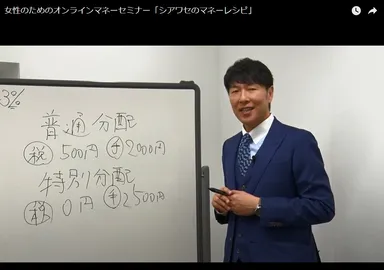 女性のためのオンラインマネーセミナー「シアワセのマネーレシピ」
3%
普通分配
税 500円 手 2000円
特別分配
税 0円 手 2500円